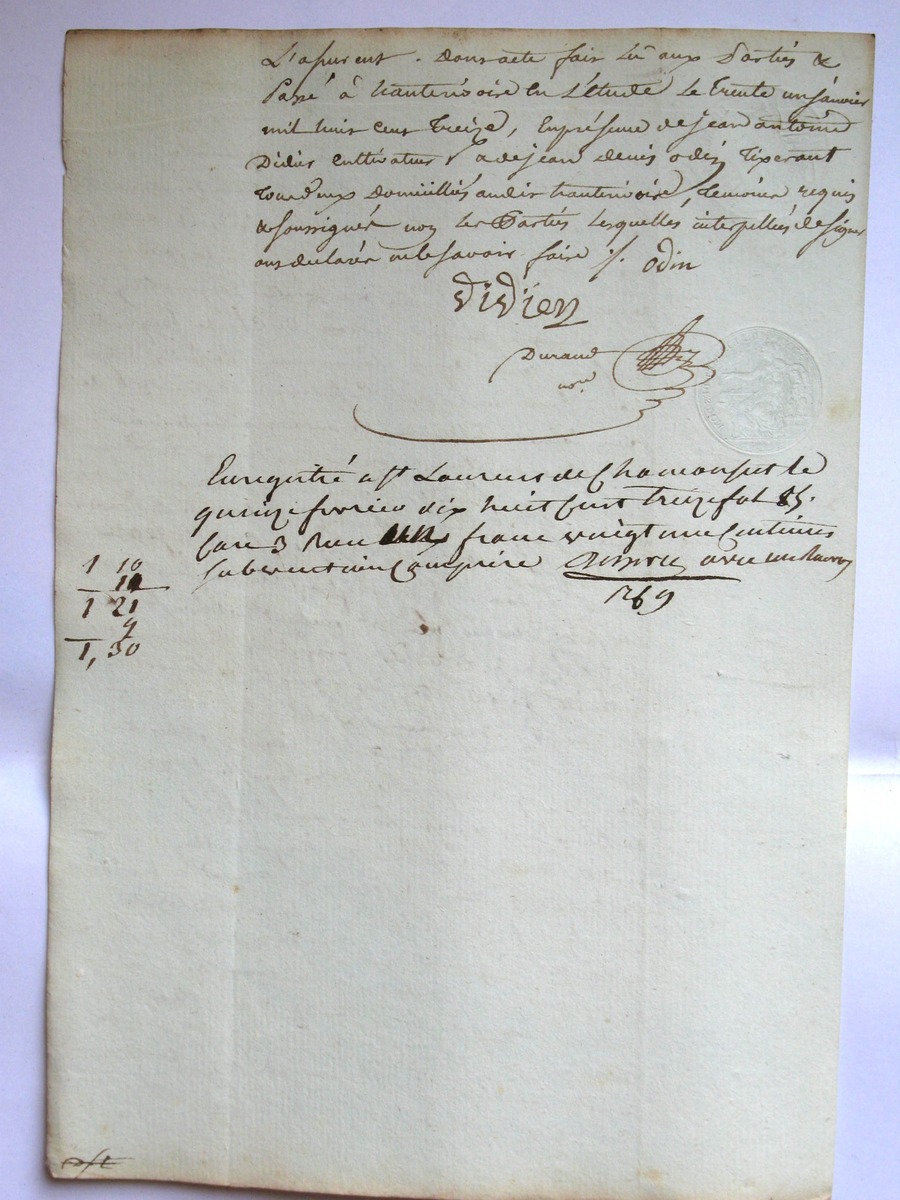 L'apurent . dont acte fait lû aux Parties &
Passé à hauterivoire en L'étude Le trente un janvier
mil huit cent treize, en présence de jean antoine
Didier cultivateur & de jean denis odin Tixerant
tous deux domiciliés audit hauterivoire, temoins requis
& soussignés non les Parties lesquelles interpellées de signer
ont declaré ne le savoir faire ./. odin
didier
Durand
nore
Enregistré a st Laurent de Chamousset le
quinze fevrier dix huit cent treize fol 85.
Case 3 Recu franc vingt une centimes
subvention comprise
269
1 10
11
1 21
9
1, 30